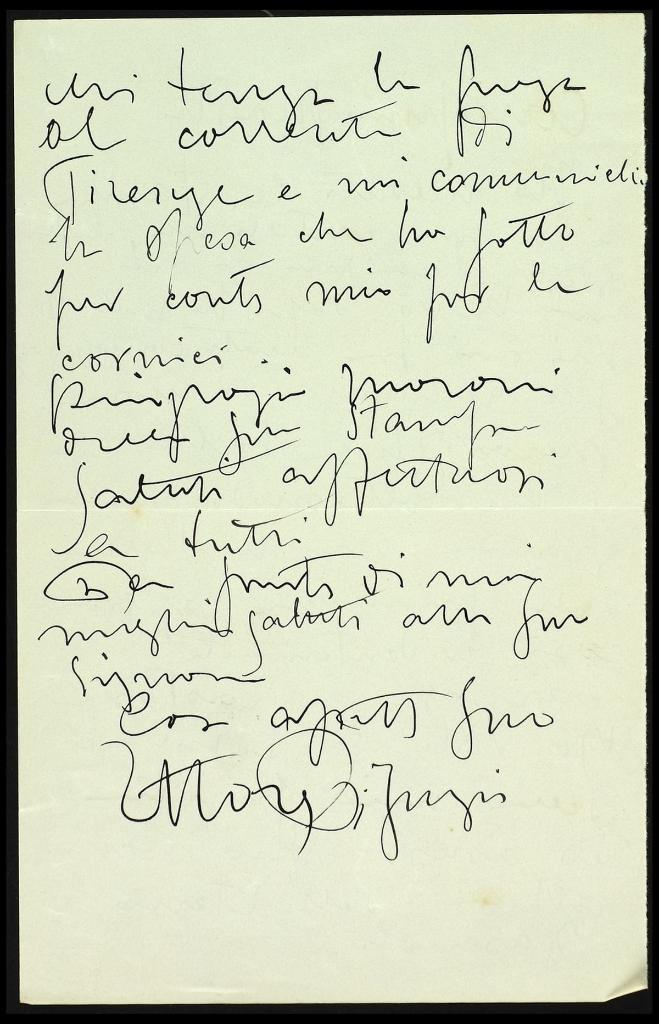 Mi tenga la prego
al corrente di
Firenze e mi comunichi
la spesa che ha fatto
per conto mio per le
cornici.
Ringrazi Moroni
della sua stampa
Saluti affettuosi
a tutti.
Da parte di mia
moglie saluti alla sua
Signora
Con affetto suo
Ettore